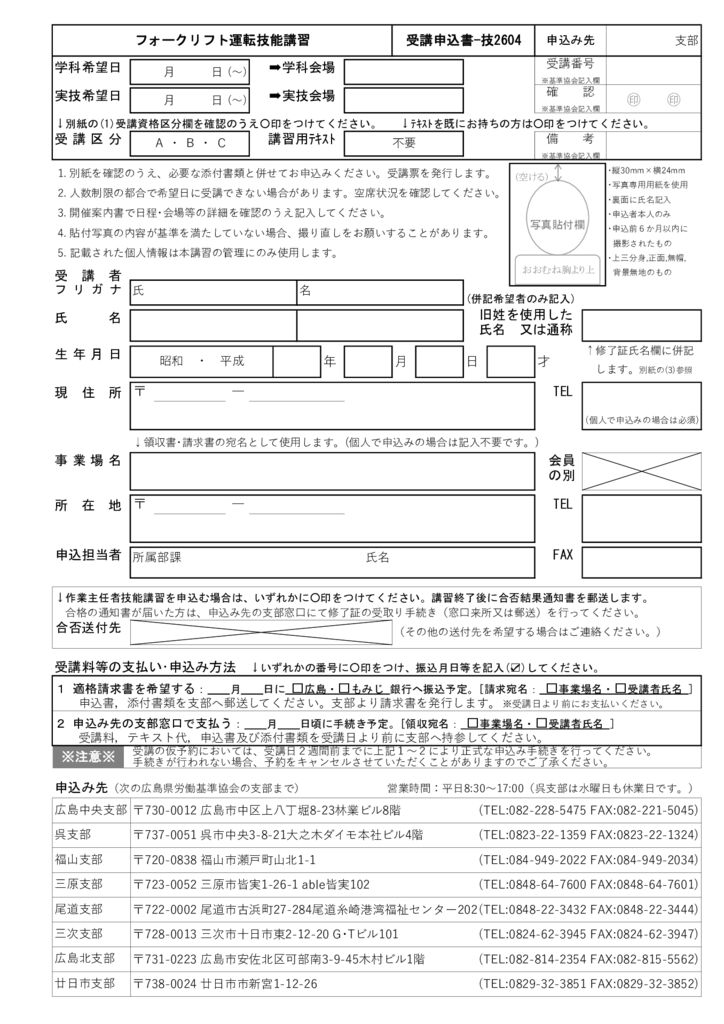 フォークリフト運転技能講習 受講申込書-技2604 申込み先 支部
学科希望日 月 日(～) ➡学科会場 受講番号
※基準協会記入欄
実技希望日 月 日(～) ➡実技会場 確 認 ㊞ ㊞
※基準協会記入欄
↓別紙の(1)受講資格区分欄を確認のうえ〇印をつけてください。 ↓ﾃｷｽﾄを既にお持ちの方は〇印をつけてください。
受 講 区 分 A ・ B ・ C 講習用ﾃｷｽﾄ 不要 備 考
※基準協会記入欄
1. 別紙を確認のうえ、必要な添付書類と併せてお申込みください。受講票を発行します。
2. 人数制限の都合で希望日に受講できない場合があります。空席状況を確認してください。
3. 開催案内書で日程･会場等の詳細を確認のうえ記入してください。
4. 貼付写真の内容が基準を満たしていない場合、撮り直しをお願いすることがあります。
5. 記載された個人情報は本講習の管理にのみ使用します。
(空ける)
写真貼付欄
おおむね胸より上
･縦30mm×横24mm
･写真専用用紙を使用
･裏面に氏名記入
･申込者本人のみ
･申込前６か月以内に
撮影されたもの
･上三分身,正面,無帽,
背景無地のもの
受 講 者
フ リ ガ ナ 氏 名
(併記希望者のみ記入)
氏 名 旧姓を使用した
氏名 又は通称
生 年 月 日 昭和 ・ 平成 年 月 日 才
↑修了証氏名欄に併記
します。別紙の(3)参照
現 住 所 〒 ― TEL
(個人で申込みの場合は必須)
↓領収書･請求書の宛名として使用します。(個人で申込みの場合は記入不要です。)
事 業 場 名 会員
の別
所 在 地 〒 ― TEL
申込担当者 所属部課 氏名 FAX
↓作業主任者技能講習を申込む場合は、いずれかに〇印をつけてください。講習終了後に合否結果通知書を郵送します。
合格の通知書が届いた方は、申込み先の支部窓口にて修了証の受取り手続き（窓口来所又は郵送）を行ってください。
合否送付先 （その他の送付先を希望する場合はご連絡ください。）
受講料等の支払い･申込み方法 ↓いずれかの番号に〇印をつけ、振込月日等を記入(☑)してください。
１ 適格請求書を希望する：　　月　　日に □広島・□もみじ 銀行へ振込予定。[請求宛名： □事業場名・□受講者氏名 ]
申込書，添付書類を支部へ郵送してください。支部より請求書を発行します。 ※受講日より前にお支払いください。
２ 申込み先の支部窓口で支払う：　　月　　日頃に手続き予定。[領収宛名： □事業場名・□受講者氏名 ]
受講料，テキスト代，申込書及び添付書類を受講日より前に支部へ持参してください。
※注意※ 受講の仮予約においては、受講日２週間前までに上記１～２により正式な申込み手続きを行ってください。
手続きが行われない場合、予約をキャンセルさせていただくことがありますのでご了承ください。
申込み先（次の広島県労働基準協会の支部まで） 営業時間：平日8:30～17:00（呉支部は水曜日も休業日です。）
広島中央支部 〒730-0012 広島市中区上八丁堀8-23林業ビル8階 (TEL:082-228-5475 FAX:082-221-5045)
呉支部 〒737-0051 呉市中央3-8-21大之木ダイモ本社ビル4階 (TEL:0823-22-1359 FAX:0823-22-1324)
福山支部 〒720-0838 福山市瀬戸町山北1-1 (TEL:084-949-2022 FAX:084-949-2034)
三原支部 〒723-0052 三原市皆実1-26-1 able皆実102 (TEL:0848-64-7600 FAX:0848-64-7601)
尾道支部 〒722-0002 尾道市古浜町27-284尾道糸崎港湾福祉センター202 (TEL:0848-22-3432 FAX:0848-22-3444)
三次支部 〒728-0013 三次市十日市東2-12-20 G･Tビル101 (TEL:0824-62-3945 FAX:0824-62-3947)
広島北支部 〒731-0223 広島市安佐北区可部南3-9-45木村ビル1階 (TEL:082-814-2354 FAX:082-815-5562)
廿日市支部 〒738-0024 廿日市市新宮1-12-26 (TEL:0829-32-3851 FAX:0829-32-3852)